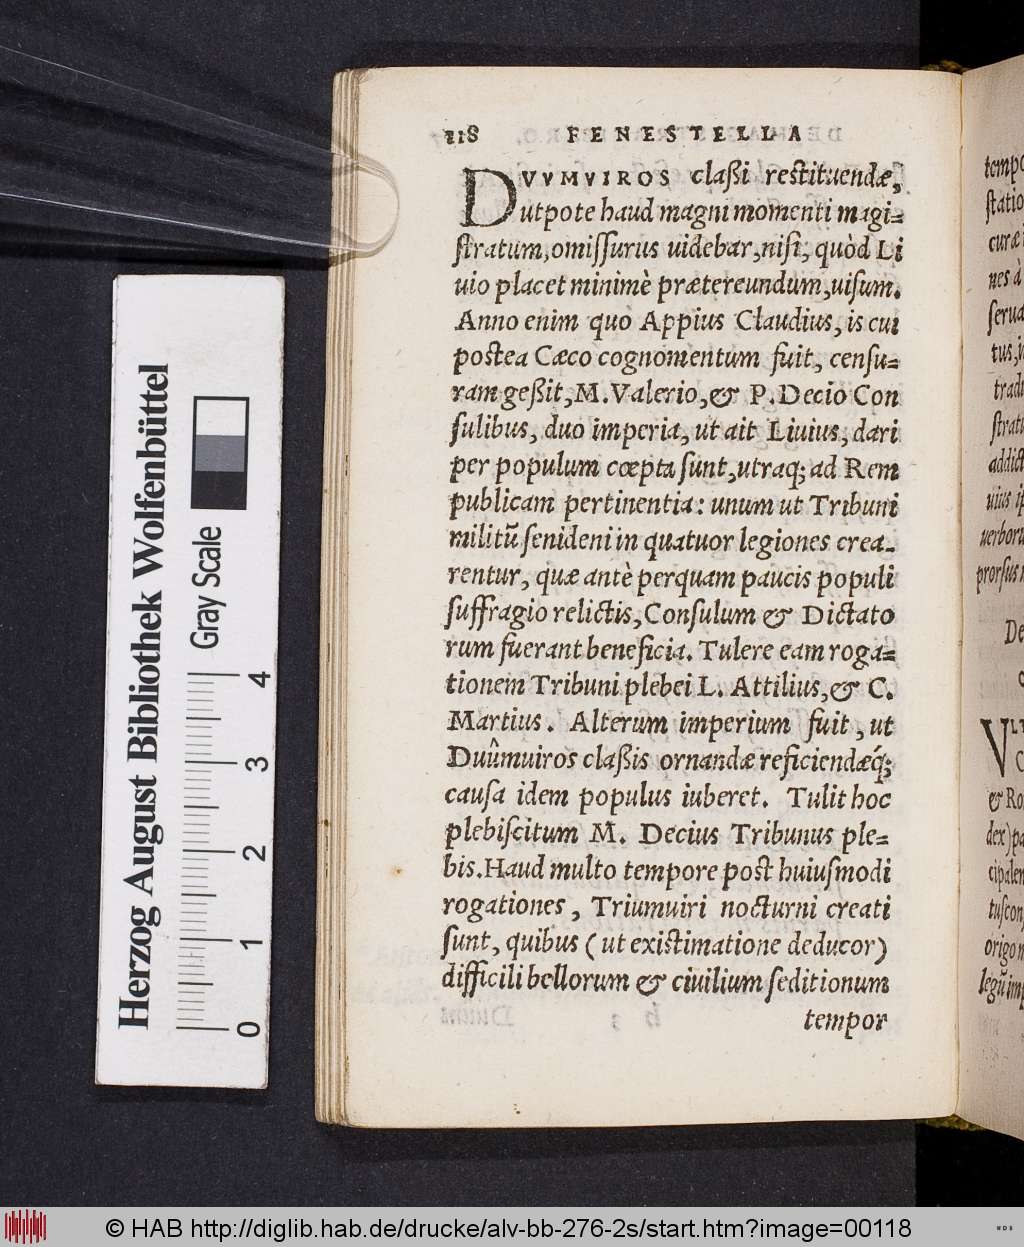 118 FENESTELLA
DVVMVIROS claßi restituendæ,
utpote haud magni momenti magi=
ſtratum, omiſſurus uidebar, niſi, quòd Li
uio placet minimè prætereundum, uiſum.
Anno enim quo Appius Claudius, is cui
postea Cæco cognomentum fuit, cenſu=
ram geßit, M. Valerio, & P. Decio Con
ſulibus, duo imperia, ut ait Liuius, dari
per populum cœpta ſunt, utraq; ad Rem
publicam pertinentia: unum ut Tribuni
militũ ſenideni in quatuor legiones crea-
rentur, quæ antè perquam paucis populi
ſuffragio relictis, Conſulum & Dictato
rum fuerant beneficia. Tulere eam roga=
tionem Tribuni plebei L. Attilius, & C.
Martius. Alterum imperium fuit, ut
Duûmuiros claßis ornandæ reficiendæq́;
cauſa idem populus iuberet. Tulit hoc
plebiſcitum M. Decius Tribunus ple=
bis. Haud multo tempore post huiuſmodi
rogationes, Triumuiri nocturni creati
ſunt, quibus (ut existimatione deducor)
difficili bellorum & ciuilium ſeditionum
tempor
tempo
ſtatio
curæ
nes à
ſerua
tus,
tradi
ſtratu
addict
uius ip
uerboru
prorſus
De
VL
& Ro
dex) pa
cipalem
tuſcon
origo
legũ imp
Herzog August Bibliothek Wolfenbüttel
Gray Scale
0 1 2 3 4
© HAB http://diglib.hab.de/drucke/alv-bb-276-2s/start.htm?image=00118
WDB